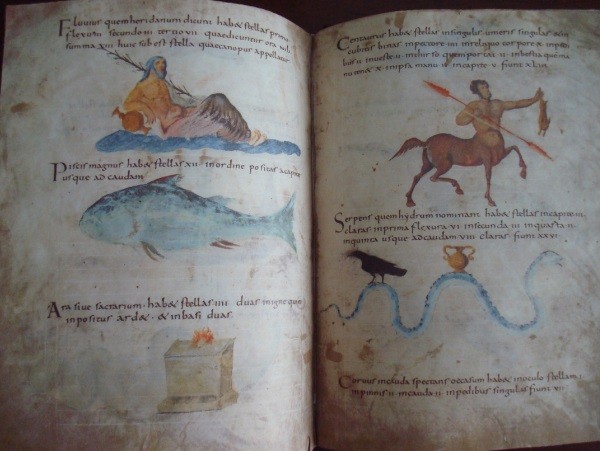 Fluuius quem heridanum dicunt hab& stellas prima
flexura secundo iii tertio vii quae dicuntur ora nili
summa xiii huic subest stella quae canopus appellatur
Piscis magnus hab& stellas xii in ordine positas a capite
usque ad caudam
Ara siue sactarium hab& stellas iiii duas in igne qui
inpositus ard& & in basi duas
Centaurus hab& stellas in singulis umeris singulas
cubitis binas in pectore
Serpens quem hydrum nominant hab& stellas in capite iii
claras in prima flexura vi in secunda iii in quarta ii
in quinta usque ad caudam viii claras fiunt xxvi
Coruus in cauda spectans occasum hab& in oculo stellam i
in pinnis ii in cauda ii in pedibus singulas fiunt vii